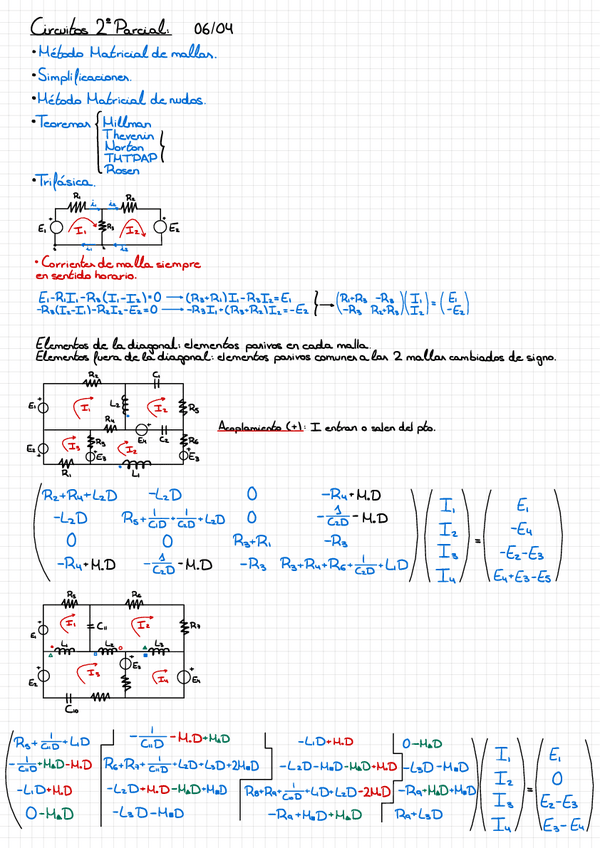 Circuitos 2º Parcial: 06/04
• Método Matricial de mallas.
• Simplificaciones.
• Método Matricial de nudos.
• Teoremas { Millman
Thevenin
Norton
TMTPAP
Rosen
• Trifásica.
R₁ i₁ i₂ R₂
E₁ I₁ R₃ I₂ E₂
i₁ i₂
• Corrientes de malla siempre
en sentido horario.
E₁-R₁I₁-R₃(I₁-I₂)=0 → (R₃+R₁)I₁-R₃I₂=E₁
-R₃(I₂-I₁)-R₂I₂-E₂=0 → -R₃I₁+(R₃+R₂)I₂=-E₂ } → (R₁+R₃ -R₃ / -R₃ R₂+R₃)(I₁ / I₂) = (E₁ / -E₂)
Elementos de la diagonal: elementos pasivos en cada malla.
Elementos fuera de la diagonal: elementos pasivos comunes a las 2 mallas cambiados de signo.
R₂ C₁
E₁ I₁ L₂ I₂ R₅
R₄
E₄ C₂ R₆
E₂ I₃ R₃ I₂
E₃ E₃
R₁ L₁
Acoplamiento (+): I entran o salen del pto.
R₂+R₄+L₂D -L₂D 0 -R₄+M.D I₁ E₁
-L₂D R₅+1/C₁D+1/C₂D+L₂D 0 -1/C₂D-M.D I₂ -E₄
0 0 R₃+R₁ -R₃ I₃ = -E₂-E₃
-R₄+M.D -1/C₂D-M.D -R₃ R₃+R₄+R₆+1/C₂D+L₁D I₄ E₄+E₃-E₅
R₅ R₆
E₁ I₁ C₁₁ I₂ R₇
L₁ L₂ L₃
E₂ I₃ E₃ I₄ E₄
C₁₀
R₅+1/C₁₁D+L₁D -1/C₁₁D-M.D+M▲D -L₁D+M.D 0-M▲D I₁ E₁
-1/C₁₁D+M▲D-M.D R₆+R₇+1/C₁₁D+L₂D+L₃D+2M■D -L₂D-M■D-M▲D+M.D -L₃D-M■D I₂ 0
-L₁D+M.D -L₂D+M.D-M▲D+M■D R₈+R₉+1/C₁₀D+L₁D+L₂D-2M.D -R₉+M▲D+M■D I₃ = E₂-E₃
0-M▲D -L₃D-M■D -R₉+M■D+M▲D R₉+L₃D I₄ E₃-E₄